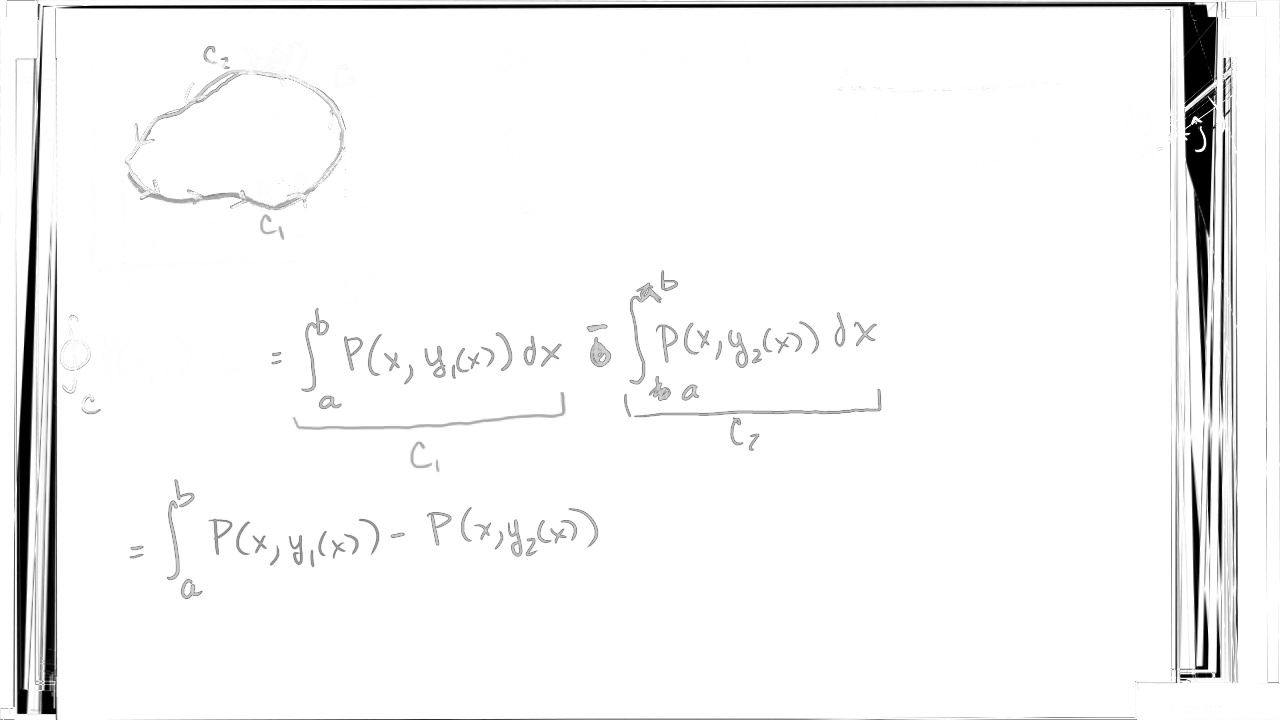 C₂
C₁
∮_C
= ∫_a^b P(x, y₁(x)) dx - ∫_a^b P(x, y₂(x)) dx
C₁ C₂
= ∫_a^b P(x, y₁(x)) - P(x, y₂(x))